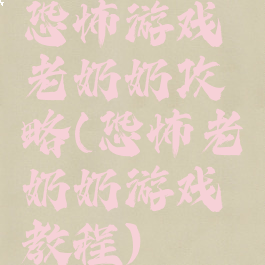 恐怖游戏
老奶奶攻
略(恐怖老
奶奶游戏
教程)